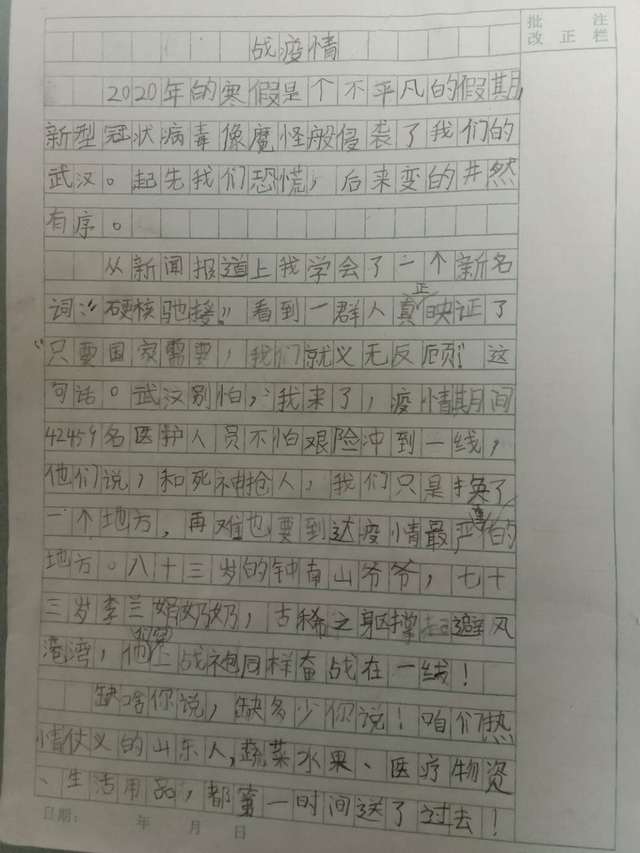 批注
改正栏
战疫情
2020年的寒假是个不平凡的假期,
新型冠状病毒像魔怪般侵袭了我们的
武汉。起先我们恐慌,后来变的井然
有序。
从新闻报道上我学会了一个新名
词:“硬核驰援”。看到一群人真正映证了
“只要国家需要,我们就义无反顾”这
句话。武汉别怕,我来了,疫情期间
42459名医护人员不怕艰险冲到一线,
他们说,和死神抢人,我们只是换了
一个地方,再难也要到达疫情最严重的
地方。八十三岁的钟南山爷爷,七十
三岁李兰娟奶奶,古稀之躯撑起避风
港湾,他们穿上战袍同样奋战在一线!
缺啥你说,缺多少你说!咱们热
情仗义的山东人,蔬菜水果、医疗物资
、生活用品,都第一时间送了过去!
日期: 年 月 日